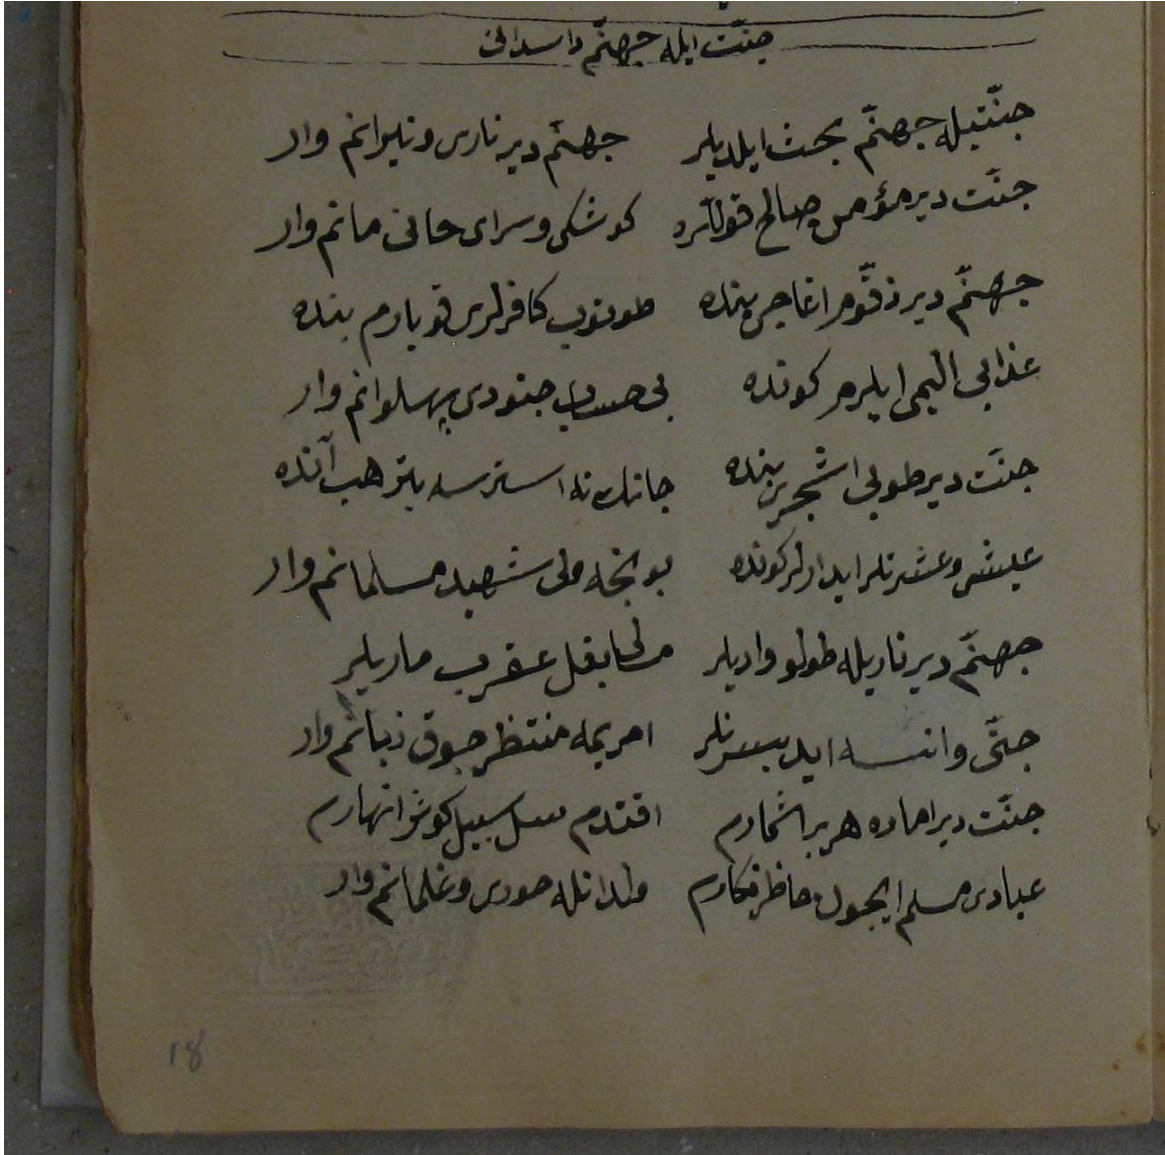 جنّت ايله جهنّم داستانى
جنّتيله جهنّم بحث ايلديلر جهنّم دير نارى ونيرانم وار
جنّت دير مؤمن صالح قوللره كوشكى وسراى خانى مانم وار
جهنّم دير زقّوم اغاجى بنده طوتوب كافرلرى قويارم بنده
عذابى اليمى ايلرم كونده بى حساب جنودى پهلوانم وار
جنّت دير طوبى اشجرى بنده جانك نه استرسه بتر هب آنده
عيش وعشرتلر ايدرلر كونده بونجه ملى شهيد مسلمانم وار
جهنّم دير ناريله طولو واديلر عقرب ماريلر
جنّى وانسه ايد امريمه منتظر چوق زبانم وار
جنّت دير اماده هر بر اشجارم سلسبيل كوثر انهارم
عبادى مسلم ايچون حاظر ولدانله حورى وغلمانم وار
18